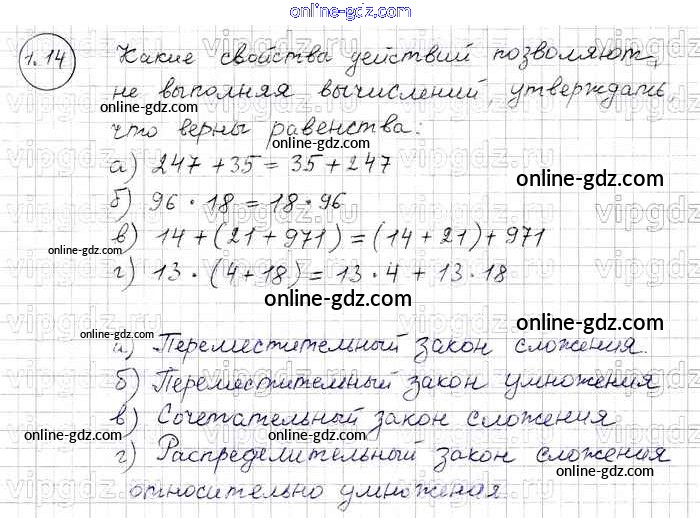 online-gdz.com
1.14 Какие свойства действий позволяют,
не выполняя вычислений, утверждать,
online-gdz.com
что верны равенства:
online-gdz.com
а) 247 + 35 = 35 + 247
online-gdz.com
б) 96 · 18 = 18 · 96
online-gdz.com
в) 14 + (21 + 971) = (14 + 21) + 971
online-gdz.com
г) 13 · (4 + 18) = 13 · 4 + 13 · 18
online-gdz.com
online-gdz.com
а) Переместительный закон сложения.
online-gdz.com
б) Переместительный закон умножения
в) Сочетательный закон сложения
online-gdz.com
online-gdz.com
г) Распределительный закон сложения
online-gdz.com
относительно умножения.